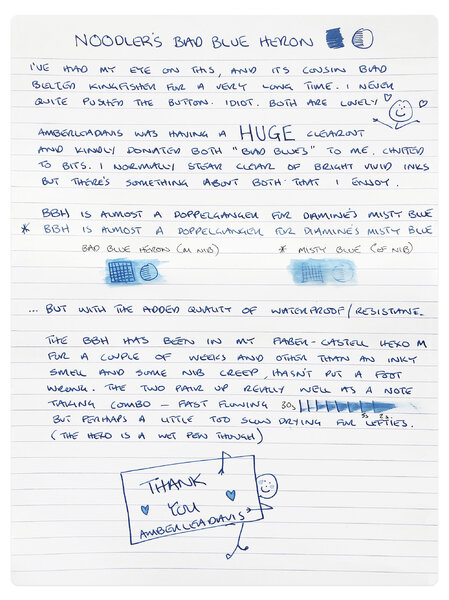 NOODLER'S BAD BLUE HERON
I'VE HAD MY EYE ON THIS, AND ITS COUSIN BAD
BELTED KINGFISHER FOR A VERY LONG TIME. I NEVER
QUITE PUSHED THE BUTTON. IDIOT. BOTH ARE LOVELY
AMBERLEADAVIS WAS HAVING A HUGE CLEAROUT
AND KINDLY DONATED BOTH "BAD BLUES" TO ME. CHUFFED
TO BITS. I NORMALLY STEAR CLEAR OF BRIGHT VIVID INKS
BUT THERE'S SOMETHING ABOUT BOTH THAT I ENJOY.
BBH IS ALMOST A DOPPELGANGER FOR DIAMINE'S MISTY BLUE
* BBH IS ALMOST A DOPPELGANGER FOR DIAMINE'S MISTY BLUE
BAD BLUE HERON (M NIB) * MISTY BLUE (EF NIB)
... BUT WITH THE ADDED QUALITY OF WATERPROOF/RESISTANE.
THE BBH HAS BEEN IN MY FABER-CASTELL HEXO M
FOR A COUPLE OF WEEKS AND OTHER THAN AN INKY
SMELL AND SOME NIB CREEP, HASN'T PUT A FOOT
WRONG. THE TWO PAIR UP REALLY WELL AS A NOTE
TAKING COMBO – FAST FLOWING 30s 5s 2s
BUT PERHAPS A LITTLE TOO SLOW DRYING FOR LEFTIES.
(THE HEXO IS A WET PEN THOUGH)
THANK
YOU
AMBERLEADAVIS